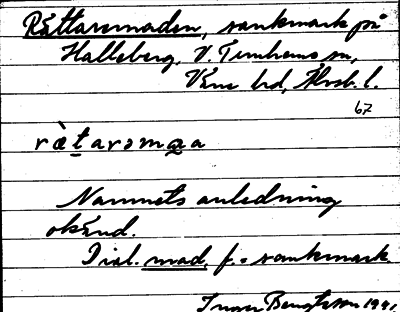 Rättaremaden, sankmark på
Halleberg, V. Tunhems sn,
Väne hd, Älvsb. l.
67
ræ̀tarəmqa
Namnets anledning
okänd.
Dial. mad, f. = sankmark
Ingar Bengtsson 1941